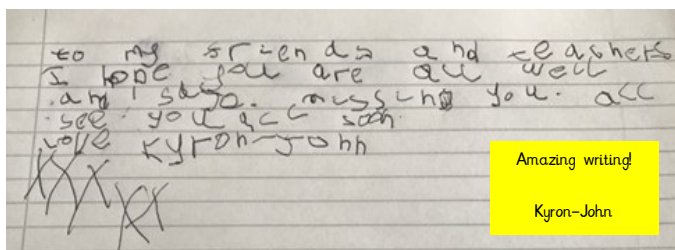 to my friends and teashers
I hope you are all well
and missing you. all
see you all soon
love Kyron-John
Amazing writing!
Kyron-John